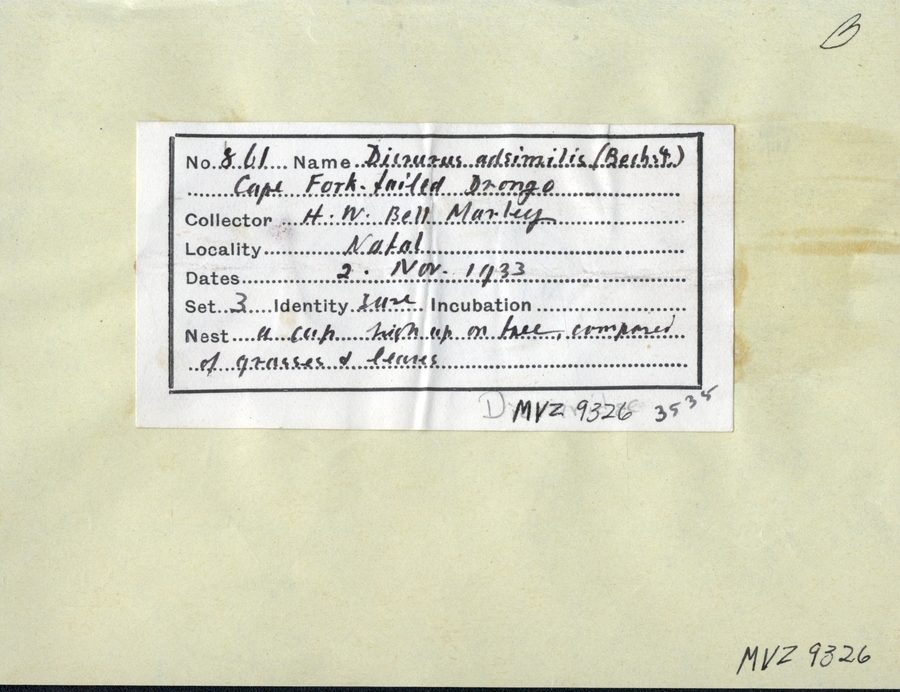 B
No. 861 Name Dicrurus adsimilis (Bechst.)
Cape Fork-tailed Drongo
Collector H. W. Bell Marley
Locality Natal
Dates 2. Nov. 1933
Set 3 Identity sure Incubation
Nest a cup high up on tree, composed
of grasses & leaves
MVZ 9326 3535
MVZ 9326